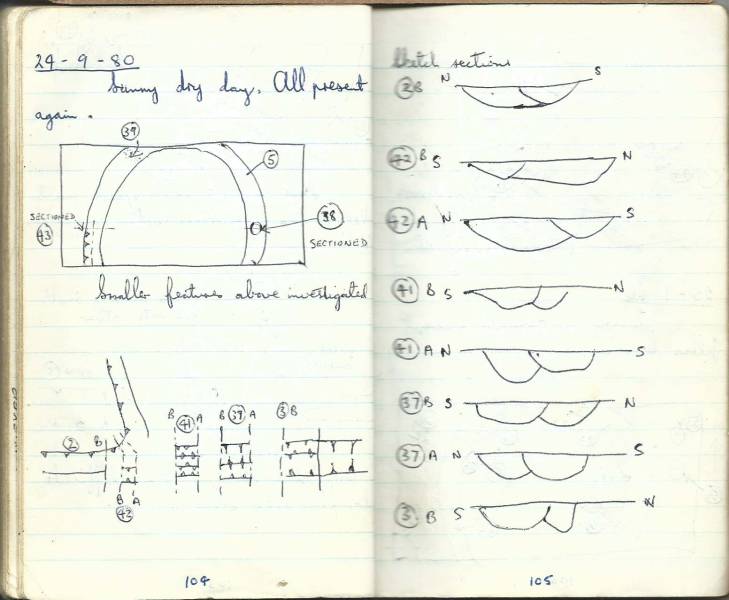 24-9-80
Sunny dry day. All present
again.
39
5
SECTIONED
43
38
SECTIONED
Smaller features above investigated
2 B
B A
42
B 41 A
B 39 A
3 B
104
Sketch sections
2B N S
42 B S N
42 A N S
41 B S N
41 A N S
37 B S N
37 A N S
3 B S N
105